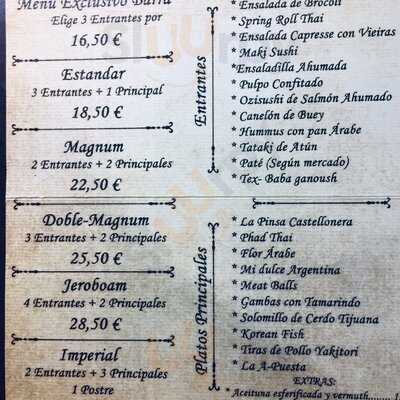 Menú Exclusivo Barra
Elige 3 Entrantes por
16,50 €
Estandar
3 Entrantes + 1 Principal
18,50 €
Magnum
2 Entrantes + 2 Principales
22,50 €
Doble-Magnum
3 Entrantes + 2 Principales
25,50 €
Jeroboam
4 Entrantes + 2 Principales
28,50 €
Imperial
2 Entrantes + 3 Principales
1 Postre
Entrantes
* Ensalada de Brócoli
* Spring Roll Thai
* Ensalada Capresse con Vieiras
* Maki Sushi
*Ensaladilla Ahumada
* Pulpo Confitado
* Ozisushi de Salmón Ahumado
* Canelón de Buey
* Hummus con pan Árabe
* Tataki de Atún
* Paté (Según mercado)
* Tex- Baba ganoush
Platos Principales
* La Pinsa Castellonera
* Phad Thai
* Flor Árabe
* Mi dulce Argentina
* Meat Balls
* Gambas con Tamarindo
* Solomillo de Cerdo Tijuana
* Korean Fish
* Tiras de Pollo Yakitori
* La A-Puesta
EXTRAS:
* Aceituna esferificada y vermuth......... 1